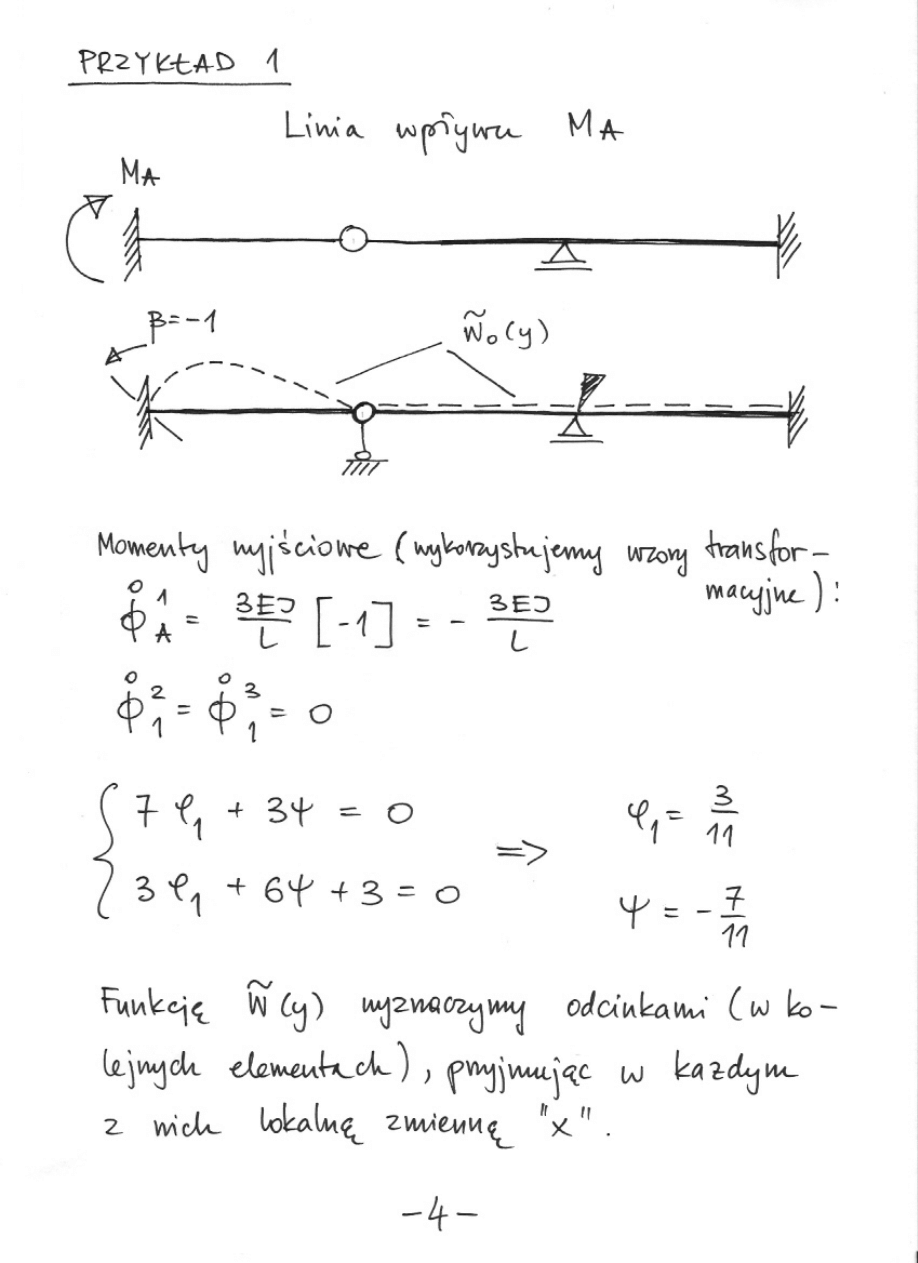 PRZYKŁAD 1
Linia wpływu MA
MA
β=-1
w̃₀(y)
Momenty wyjściowe (wykorzystujemy wzory transfor-
macyjne):
ϕ̊¹_A = 3EJ/L [-1] = - 3EJ/L
ϕ̊²₁ = ϕ̊³₁ = 0
7φ₁ + 3ψ = 0
3φ₁ + 6ψ + 3 = 0
=>
φ₁ = 3/11
ψ = - 7/11
Funkcję w̃(y) wyznaczymy odcinkami (w ko-
lejnych elementach), przyjmując w każdym
z nich lokalną zmienną "x".
-4-